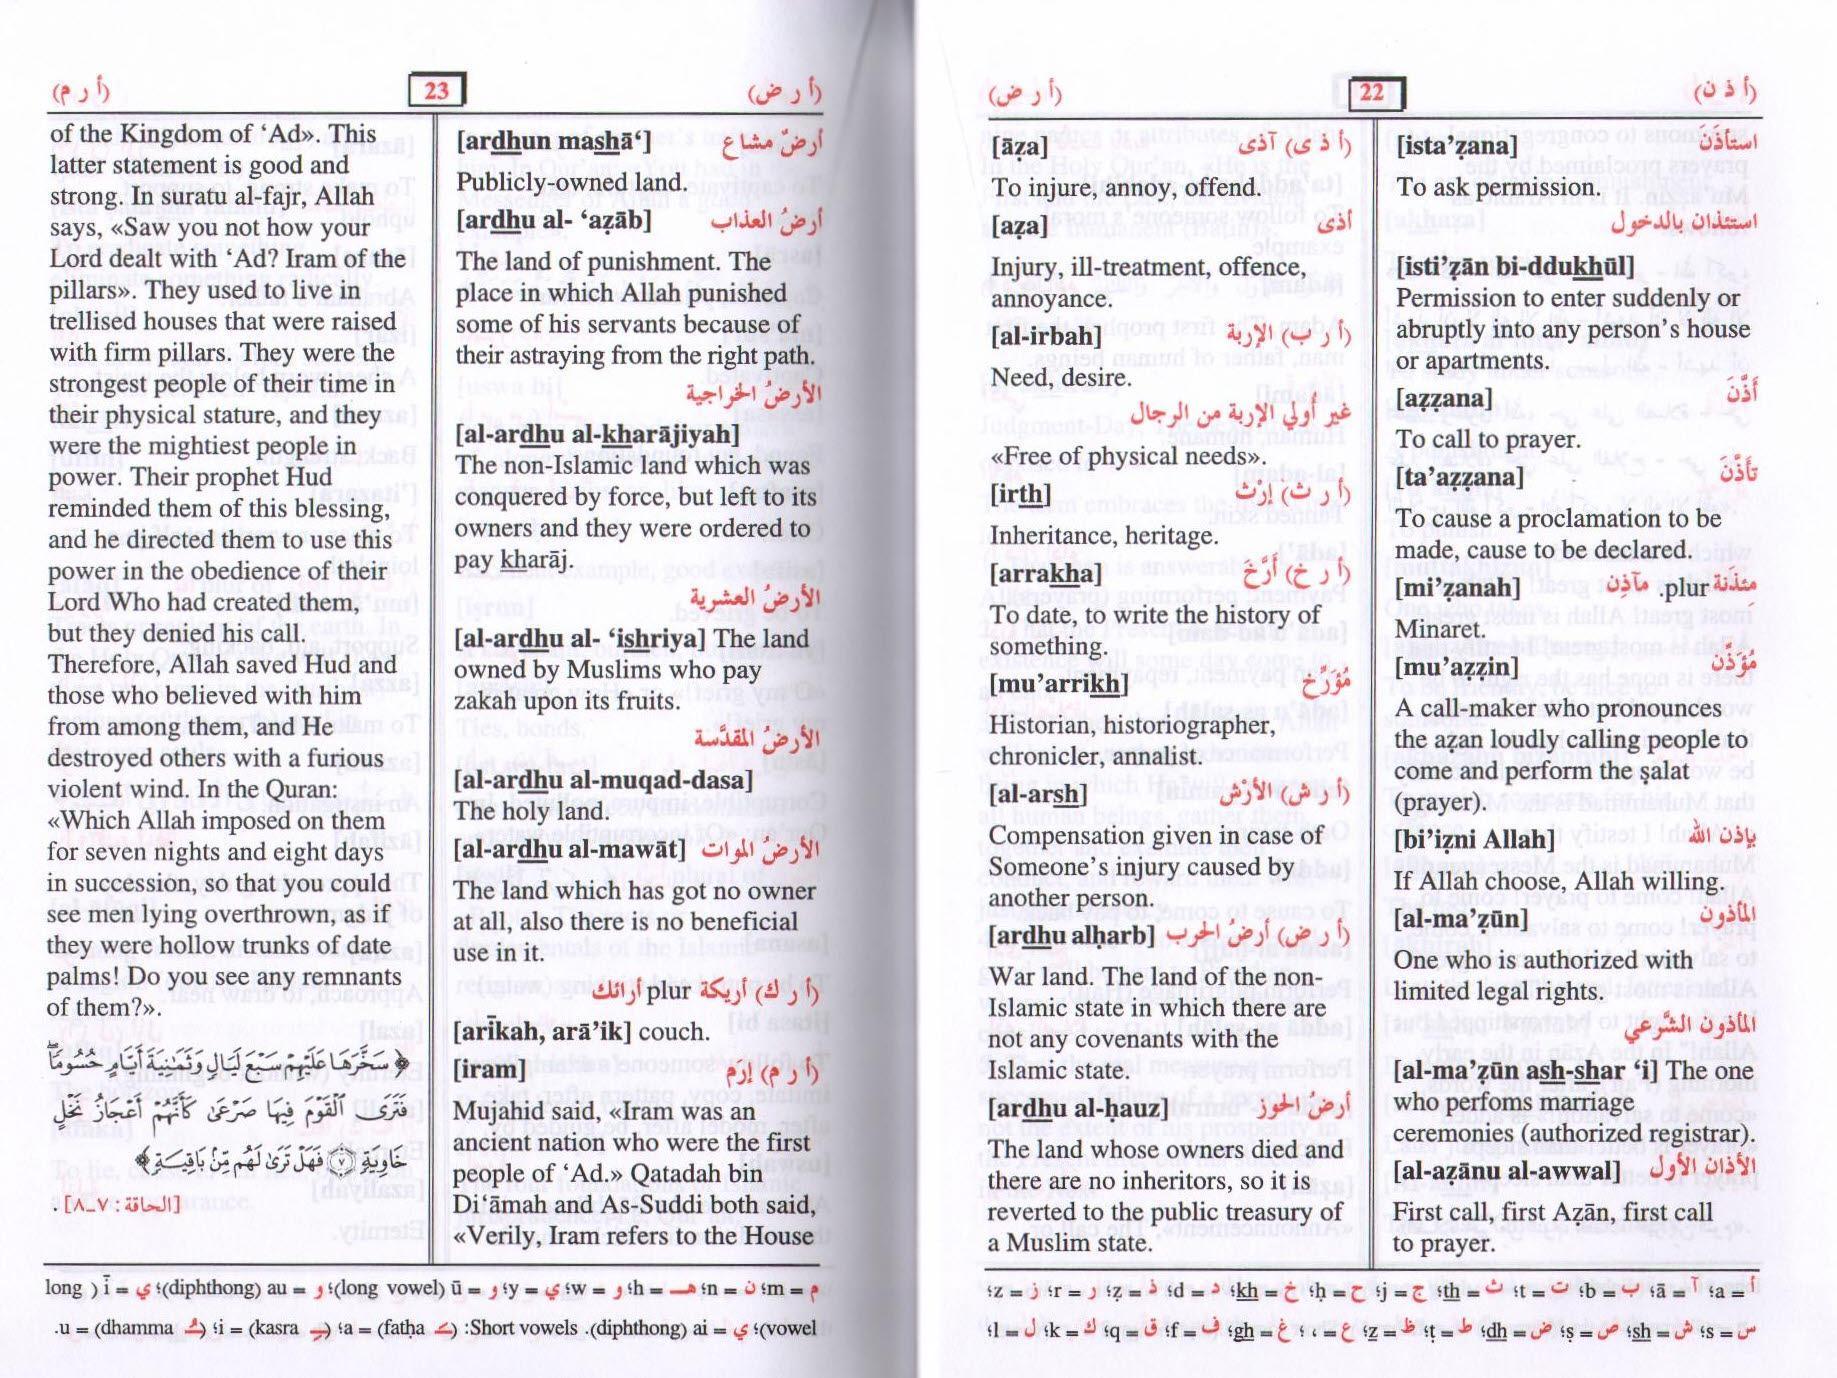 (أ ذ ن)
22
(أ ر ض)
[ista’ẓana] استَأذَنَ
To ask permission.
استئذان بالدخول
[isti’ẓān bi-ddukhūl]
Permission to enter suddenly or
abruptly into any person’s house
or apartments.
[aẓẓana] أَذَّنَ
To call to prayer.
[ta’aẓẓana] تأذَّنَ
To cause a proclamation to be
made, cause to be declared.
[mi’ẓanah] مئذَنة plur. مآذِن
Minaret.
[mu’aẓẓin] مُؤَذِّن
A call-maker who pronounces
the aẓan loudly calling people to
come and perform the ṣalat
(prayer).
[bi’iẓni Allah] بإذن الله
If Allah choose, Allah willing.
[al-ma’ẓūn] المأذون
One who is authorized with
limited legal rights.
المأذون الشَّرعي
[al-ma’ẓūn ash-shar ‘i] The one
who perfoms marriage
ceremonies (authorized registrar).
[al-aẓānu al-awwal] الأذان الأول
First call, first Aẓān, first call
to prayer.
[āẓa] (أ ذ ى) آذى
To injure, annoy, offend.
[aẓa] أذى
Injury, ill-treatment, offence,
annoyance.
[al-irbah] (أ ر ب) الإربة
Need, desire.
غير أولي الإربة من الرجال
«Free of physical needs».
[irth] (أ ر ث) إرْث
Inheritance, heritage.
[arrakha] (أ ر خ) أَرَّخَ
To date, to write the history of
something.
[mu’arrikh] مُؤرِّخ
Historian, historiographer,
chronicler, annalist.
[al-arsh] (أ ر ش) الأرْش
Compensation given in case of
Someone’s injury caused by
another person.
[ardhu alḥarb] (أ ر ض) أرضُ الحرب
War land. The land of the non-
Islamic state in which there are
not any covenants with the
Islamic state.
[ardhu al-ḥauz] أرضُ الحوز
The land whose owners died and
there are no inheritors, so it is
reverted to the public treasury of
a Muslim state.
أ = a؛ آ = ā؛ ب = b؛ ت = t؛ ث = th؛ ج = j؛ ح = ḥ؛ خ = kh؛ د = d؛ ذ = ẓ؛ ر = r؛ ز = z؛
س = s؛ ش = sh؛ ص = ṣ؛ ض = dh؛ ط = ṭ؛ ظ = ẓ؛ ع = ‘؛ غ = gh؛ ف = f؛ ق = q؛ ك = k؛ ل = l؛
(أ ر ض)
23
(أ ر م)
[ardhun mashā‘] أرضٌ مشاع
Publicly-owned land.
[ardhu al- ‘aẓāb] أرضُ العذاب
The land of punishment. The
place in which Allah punished
some of his servants because of
their astraying from the right path.
الأرضُ الخراجية
[al-ardhu al-kharājiyah]
The non-Islamic land which was
conquered by force, but left to its
owners and they were ordered to
pay kharāj.
الأرضُ العشرية
[al-ardhu al- ‘ishriya] The land
owned by Muslims who pay
zakah upon its fruits.
الأرضُ المقدَّسة
[al-ardhu al-muqad-dasa]
The holy land.
[al-ardhu al-mawāt] الأرضُ الموات
The land which has got no owner
at all, also there is no beneficial
use in it.
(أ ر ك) أريكة plur أرائك
[arīkah, arā’ik] couch.
[iram] (أ ر م) إرَم
Mujahid said, «Iram was an
ancient nation who were the first
people of ‘Ad.» Qatadah bin
Di‘āmah and As-Suddi both said,
«Verily, Iram refers to the House
of the Kingdom of ‘Ad». This
latter statement is good and
strong. In suratu al-fajr, Allah
says, «Saw you not how your
Lord dealt with ‘Ad? Iram of the
pillars». They used to live in
trellised houses that were raised
with firm pillars. They were the
strongest people of their time in
their physical stature, and they
were the mightiest people in
power. Their prophet Hud
reminded them of this blessing,
and he directed them to use this
power in the obedience of their
Lord Who had created them,
but they denied his call.
Therefore, Allah saved Hud and
those who believed with him
from among them, and He
destroyed others with a furious
violent wind. In the Quran:
«Which Allah imposed on them
for seven nights and eight days
in succession, so that you could
see men lying overthrown, as if
they were hollow trunks of date
palms! Do you see any remnants
of them?».
﴿ سَخَّرَهَا عَلَيْهِمْ سَبْعَ لَيَالٍ وَثَمَٰنِيَةَ أَيَّامٍ حُسُومًا
فَتَرَى ٱلْقَوْمَ فِيهَا صَرْعَىٰ كَأَنَّهُمْ أَعْجَازُ نَخْلٍ
خَاوِيَةٍ ۝٧ فَهَلْ تَرَىٰ لَهُم مِّنۢ بَاقِيَةٍ ﴾
[الحاقة: ٧ـ٨] .
م = m؛ ن = n؛ هـ = h؛ و = w؛ ي = y؛ و = ū (long vowel)؛ و = au (diphthong)؛ ي = ī ( long
vowel)؛ ي = ai (diphthong). Short vowels: (ـَ fatḥa) = a؛ (ـِ kasra) = i؛ (ـُ dhamma) = u.